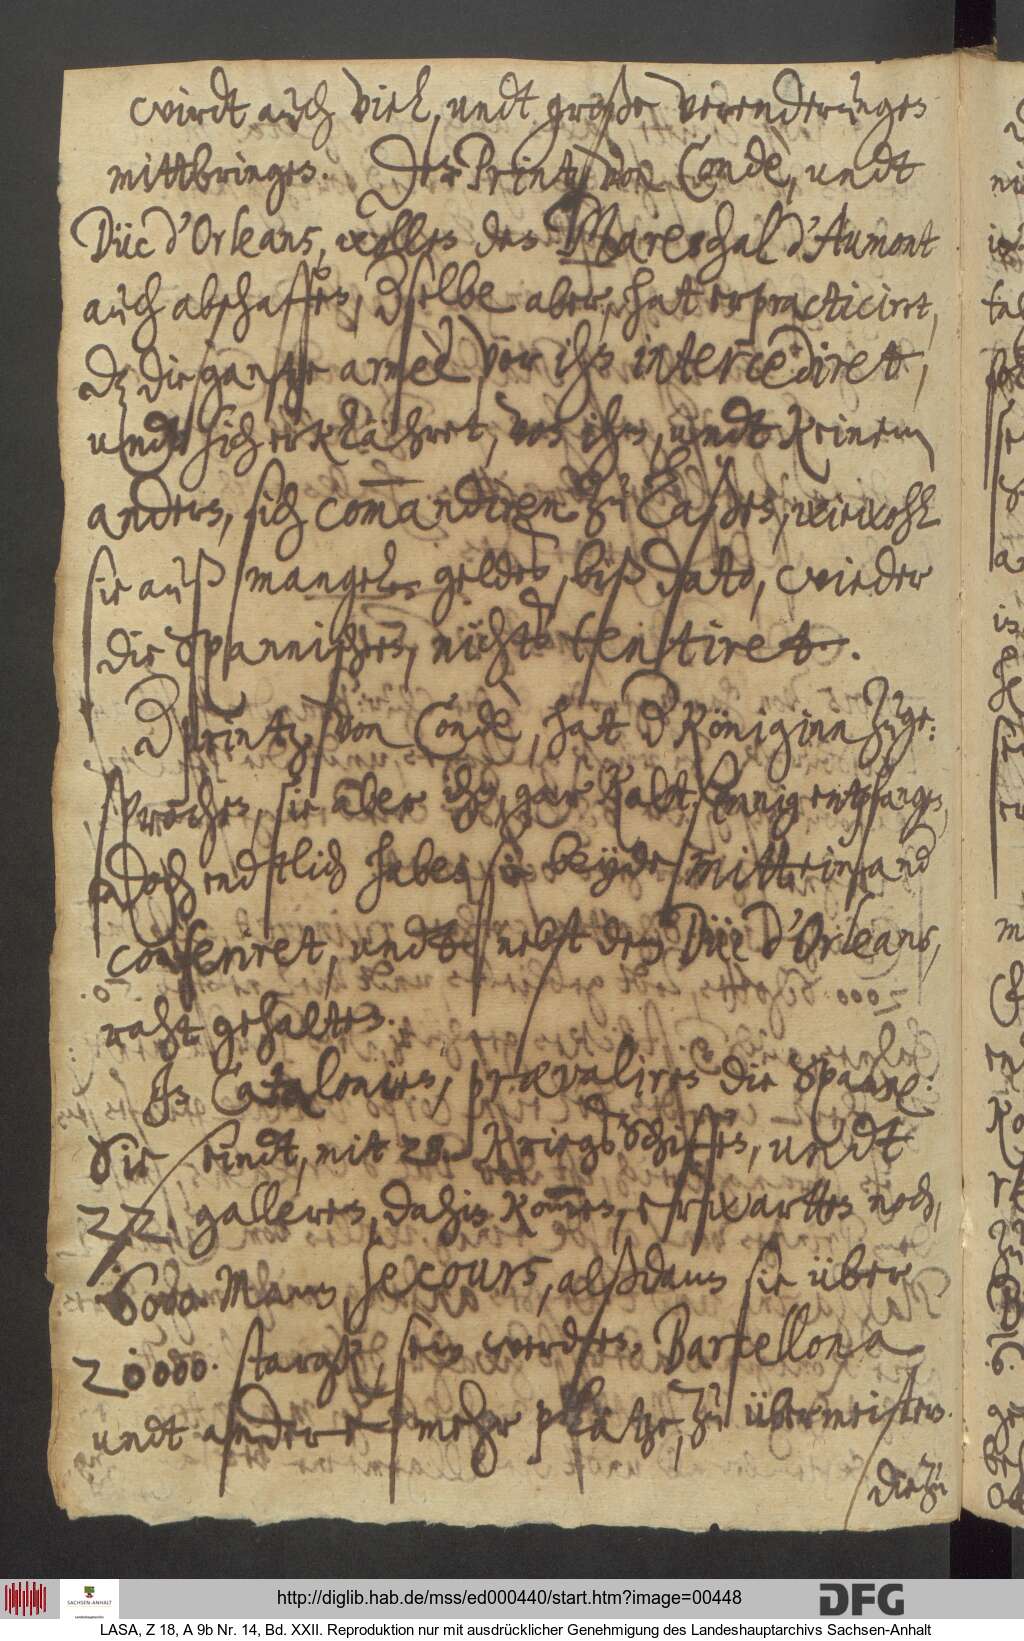 wirdt auch viel, undt große verenderungen
mittbringen. Der Printz von Condè, undt
Düc d'Orleans, wollen den Mareschal d'Aumont
auch abschaffen, derselbe aber, hat erpracticiret,
daß die gantze armèe, vor ihn intercediret,
undt sich erklähret, von ihm, undt keinem
andern, sich comandiren zu laßen, wiewohl
sie auß mangel geldes, biß dato, wieder
die Spannischen, nichts tentiret.
Der Printz, von Condè, hat der Königinn zuge-
sprochen, sie aber ihn, gar kaltsinnig entpfangen,
Doch endtlich haben sie beyde mitteinander
conferiret, undt nebst dem Düc d'Orleans,
raht gehalten.
In Catalonien, prævaliren die Spannier:
Sie seindt, mit 28 KriegsSchiffen, undt
22. galleren, dahin kommen, erwartten noch,
6000. Mann, secours, alßdann sie über
20000. starck, sein werden, Barcellona
undt andere mehr plätze, zu übermeistern.
Die zu
http://diglib.hab.de/mss/ed000440/start.htm?image=00448
DFG
SACHSEN-ANHALT
LASA, Z 18, A 9b Nr. 14, Bd. XXII. Reproduktion nur mit ausdrücklicher Genehmigung des Landeshauptarchivs Sachsen-Anhalt